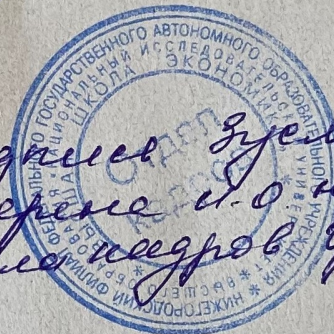 НИЖЕГОРОДСКИЙ ФИЛИАЛ ФЕДЕРАЛЬНОГО ГОСУДАРСТВЕННОГО АВТОНОМНОГО ОБРАЗОВАТЕЛЬНОГО УЧРЕЖДЕНИЯ
НАЦИОНАЛЬНЫЙ ИССЛЕДОВАТЕЛЬСКИЙ УНИВЕРСИТЕТ
ШКОЛА ЭКОНОМИКИ
Отдел
кадров
дпись Зусм
ерена и.о н
ла кадров